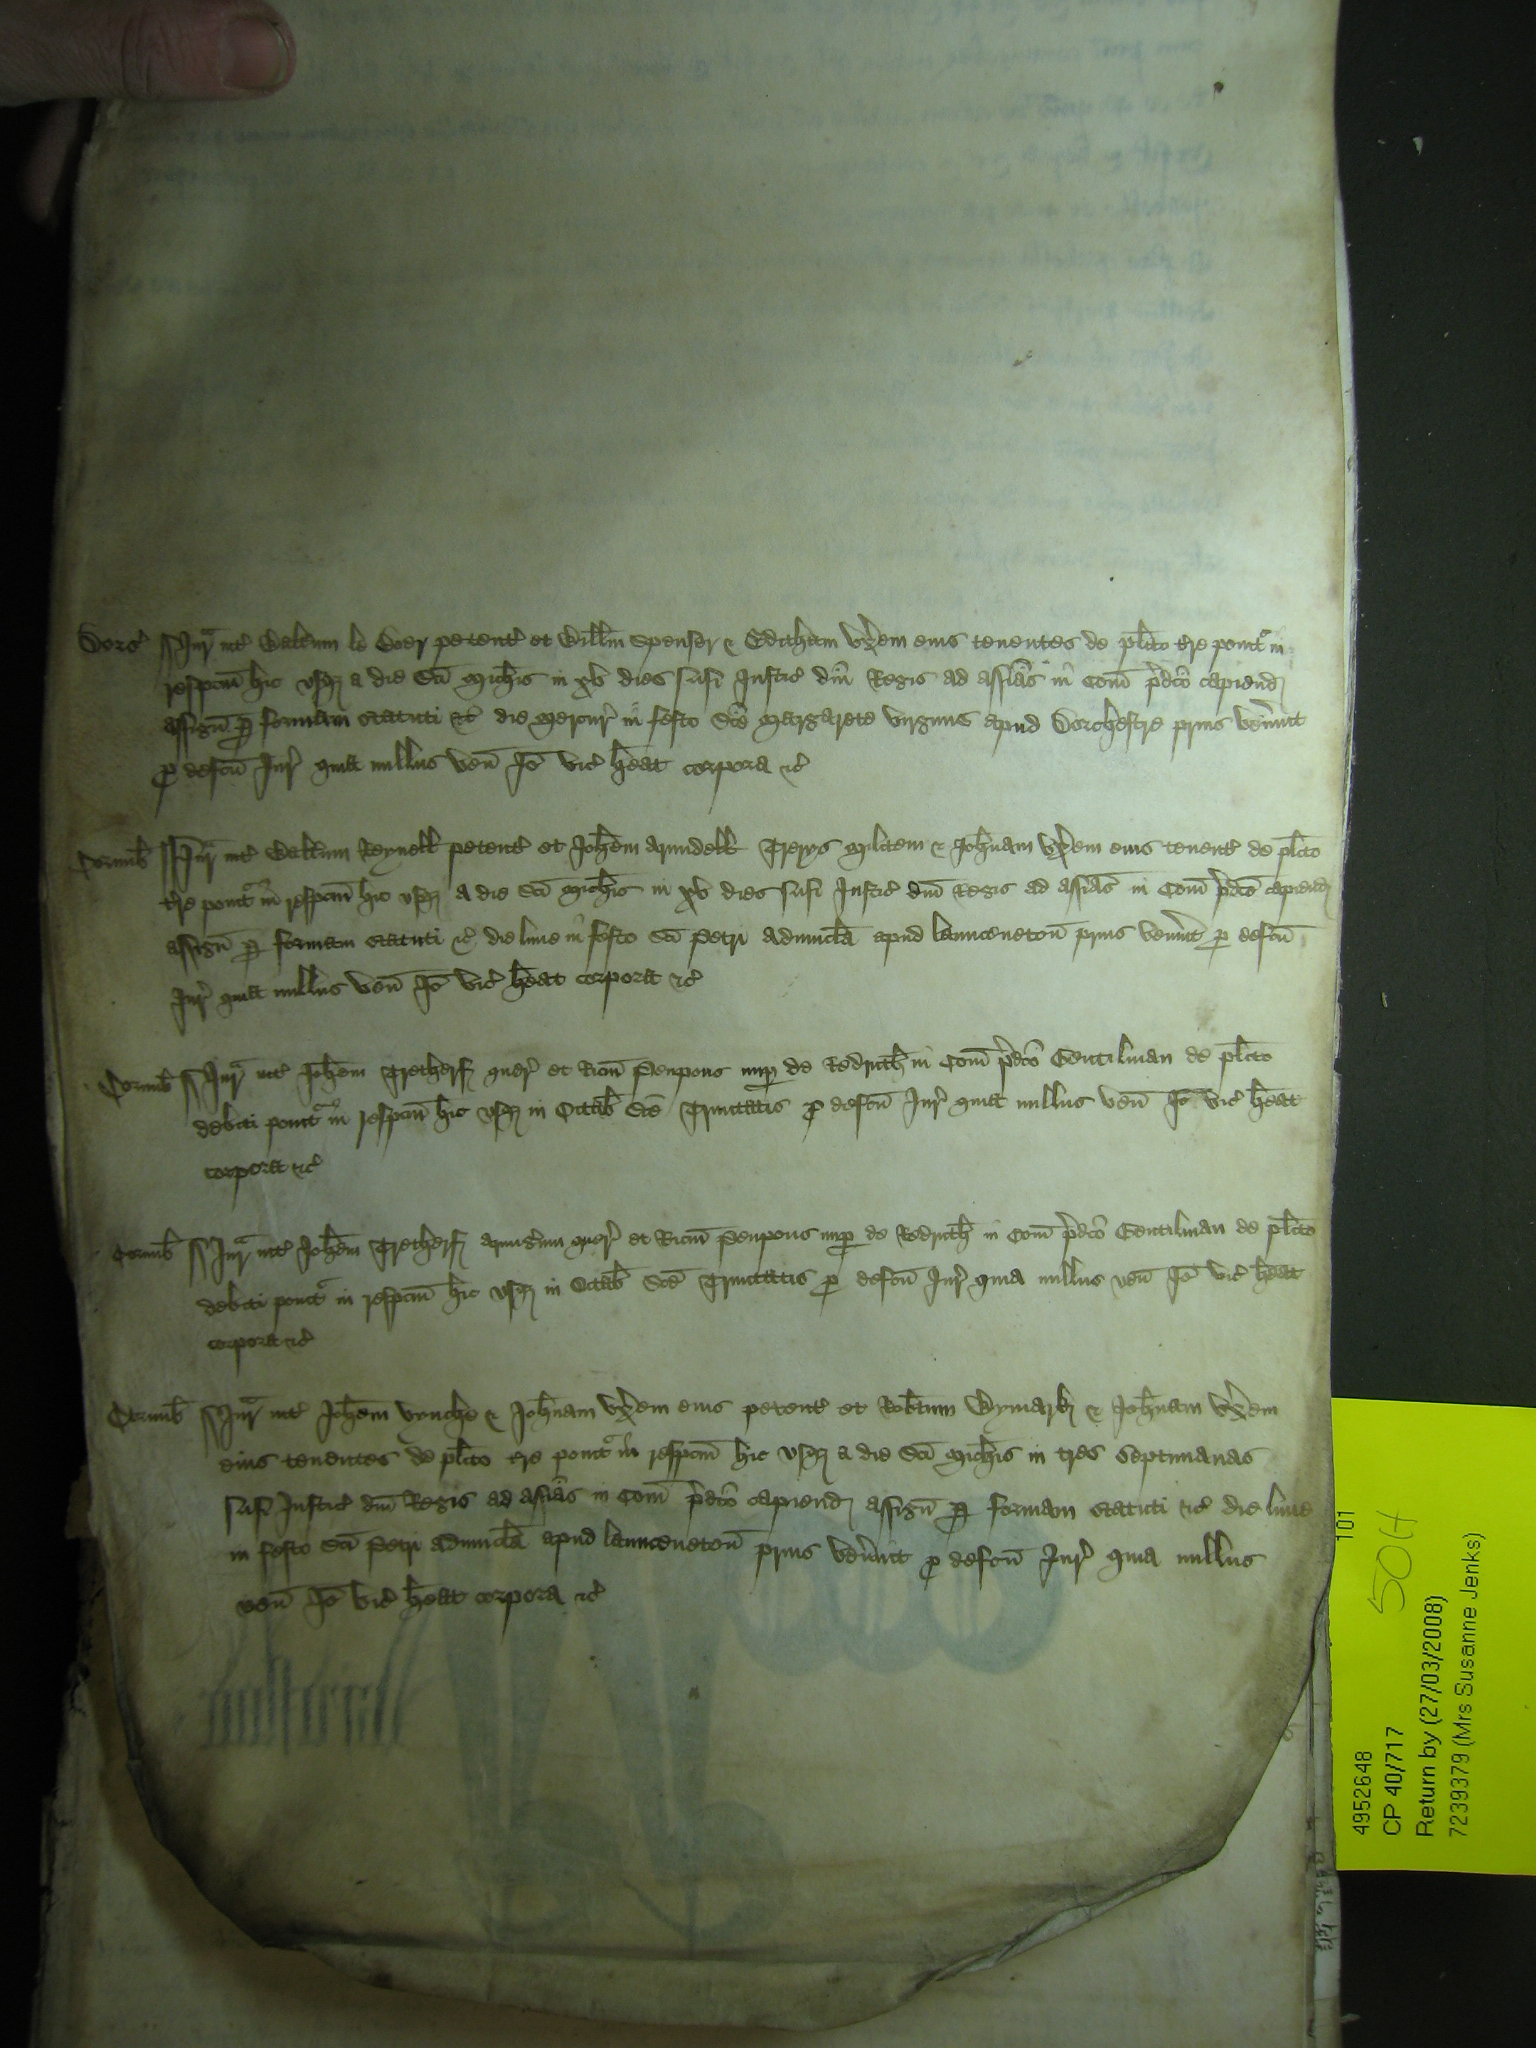 Dors' Jur' int' Walt'um le Boer petent' et Will'm Spenser & Editham ux'em eius tenentes de pl'ito t're ponit' in
respc'm hic usq' a die S'ci Mich'is in xv dies nisi Justic' d'ni Regis ad ass'as in Com' p'dco capiend'
assign' p' formam statuti &c' die Mercur' in festo S'ce Margarete virginis apud Dorchestre prius ven'int
p' defc'u Jur' quia nullus ven' Io' vic' h'eat corpora &c'
Cornub' Jur' int' Walt'um Reynell petent' et Joh'em Arundell Trerys militem & Joh'nam ux'em eius tenent' de pl'ito
t're ponit' in respc'm hic usq' a die S'ci Mich'is in xv dies nisi Justic' d'ni Regis ad ass'as in Com' p'dco capiend'
assign' p' formam statuti &c' die lune in festo S'ci Petri Advincl'a apud launceneton' prius ven'int p' defc'u
Jur' quia nullus ven' Io' vic' h'eat corpora &c'
Cornub' Jur' int' Joh'em Tretherf quer' et Ric'm Penpons nup' de Redruth in Com' p'dco Gentilman de pl'ito
debiti ponit' in respc'm hic usq' in Octab' S'ce Trinitatis p' defc'u Jur' quia nullus ven' Io' vic' h'eat
corpora &c'
Cornub' Jur' int' Joh'em Tretherf armig'um quer' et Ric'm Penpons nup' de Redruth in Com' p'dco Gentilman de pl'ito
debiti ponit' in respc'm hic usq' in Octab' S'ce Trinitatis p' defc'u Jur' quia nullus ven' Io' vic' h'eat
corpora &c'
Cornub' Jur' int' Joh'em & Joh'nam ux'em eius petent' et Rob'tum Wymark & Joh'nam ux'em
eius tenentes de pl'ito t're ponit' in respc'm hic usq' a die S'ci Mich'is in tres septimanas
nisi Justic' d'ni Regis ad ass'as in Com' p'dco capiend' assign' p' formam statuti &c' die lune
in festo S'ci Petri Advincl'a apud launceneton' prius ven'int p' defc'u Jur' quia nullus
ven' Io' vic' h'eat corpora &c'
101
4952648
CP 40/717 50H
Return by (27/03/2008)
7239379 (Mrs Susanne Jenks)